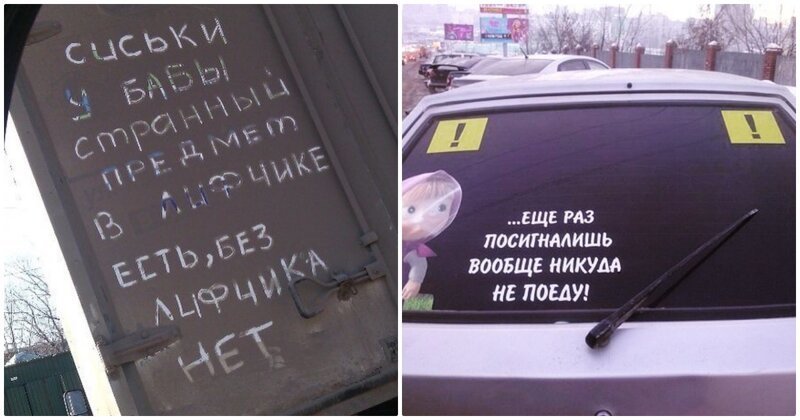 СИСЬКИ
У БАБЫ
СТРАННЫЙ
ПРЕДМЕТ
В ЛИФЧИКЕ
ЕСТЬ, БЕЗ
ЛИФЧИКА
НЕТ
! !
...ЕЩЕ РАЗ
ПОСИГНАЛИШЬ
ВООБЩЕ НИКУДА
НЕ ПОЕДУ!